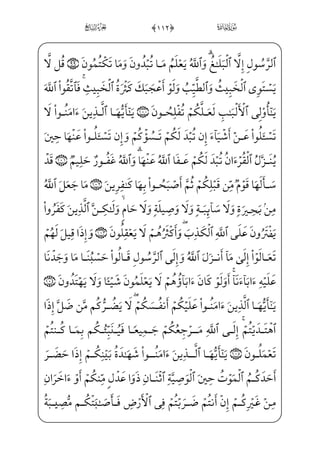 سُورَةُ المَائِدَةِ ﴿١١٢﴾ الجُزْءُ السَّابِعُ
ٱلرَّسُولِ إِلَّا ٱلْبَلَٰغُ ۗ وَٱللَّهُ يَعْلَمُ مَا تُبْدُونَ وَمَا تَكْتُمُونَ ۝٩٩ قُل لَّا
يَسْتَوِى ٱلْخَبِيثُ وَٱلطَّيِّبُ وَلَوْ أَعْجَبَكَ كَثْرَةُ ٱلْخَبِيثِ ۚ فَٱتَّقُوا۟ ٱللَّهَ
يَٰٓأُو۟لِى ٱلْأَلْبَٰبِ لَعَلَّكُمْ تُفْلِحُونَ ۝١٠٠ يَٰٓأَيُّهَا ٱلَّذِينَ ءَامَنُوا۟ لَا
تَسْـَٔلُوا۟ عَنْ أَشْيَآءَ إِن تُبْدَ لَكُمْ تَسُؤْكُمْ وَإِن تَسْـَٔلُوا۟ عَنْهَا حِينَ
يُنَزَّلُ ٱلْقُرْءَانُ تُبْدَ لَكُمْ عَفَا ٱللَّهُ عَنْهَا ۗ وَٱللَّهُ غَفُورٌ حَلِيمٌ ۝١٠١ قَدْ
سَأَلَهَا قَوْمٌ مِّن قَبْلِكُمْ ثُمَّ أَصْبَحُوا۟ بِهَا كَٰفِرِينَ ۝١٠٢ مَا جَعَلَ ٱللَّهُ
مِنۢ بَحِيرَةٍ وَلَا سَآئِبَةٍ وَلَا وَصِيلَةٍ وَلَا حَامٍ ۙ وَلَٰكِنَّ ٱلَّذِينَ كَفَرُوا۟
يَفْتَرُونَ عَلَى ٱللَّهِ ٱلْكَذِبَ ۖ وَأَكْثَرُهُمْ لَا يَعْقِلُونَ ۝١٠٣ وَإِذَا قِيلَ لَهُمْ
تَعَالَوْا۟ إِلَىٰ مَآ أَنزَلَ ٱللَّهُ وَإِلَى ٱلرَّسُولِ قَالُوا۟ حَسْبُنَا مَا وَجَدْنَا
عَلَيْهِ ءَابَآءَنَآ ۚ أَوَلَوْ كَانَ ءَابَآؤُهُمْ لَا يَعْلَمُونَ شَيْـًٔا وَلَا يَهْتَدُونَ ۝١٠٤
يَٰٓأَيُّهَا ٱلَّذِينَ ءَامَنُوا۟ عَلَيْكُمْ أَنفُسَكُمْ ۖ لَا يَضُرُّكُم مَّن ضَلَّ إِذَا
ٱهْتَدَيْتُمْ ۚ إِلَى ٱللَّهِ مَرْجِعُكُمْ جَمِيعًا فَيُنَبِّئُكُم بِمَا كُنتُمْ
تَعْمَلُونَ ۝١٠٥ يَٰٓأَيُّهَا ٱلَّذِينَ ءَامَنُوا۟ شَهَٰدَةُ بَيْنِكُمْ إِذَا حَضَرَ
أَحَدَكُمُ ٱلْمَوْتُ حِينَ ٱلْوَصِيَّةِ ٱثْنَانِ ذَوَا عَدْلٍ مِّنكُمْ أَوْ ءَاخَرَانِ
مِنْ غَيْرِكُمْ إِنْ أَنتُمْ ضَرَبْتُمْ فِى ٱلْأَرْضِ فَأَصَٰبَتْكُم مُّصِيبَةُ